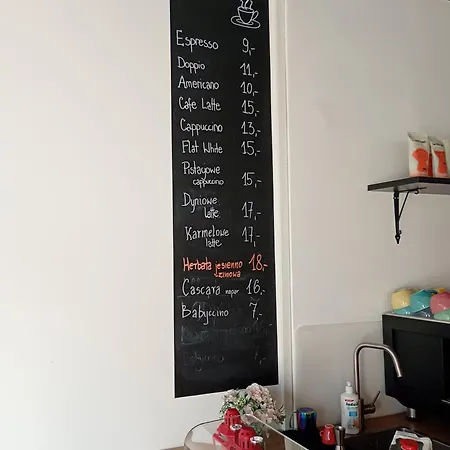 Espresso 9,-
Doppio 11,-
Americano 10,-
Cafe Latte 15,-
Cappuccino 13,-
Flat White 15,-
Pistacjowe
cappuccino 15,-
Dyniowe
latte 17,-
Karmelowe
latte 17,-
Herbata jesienno
zimowa 18,-
Cascara napar 16,-
Babyccino 7,-